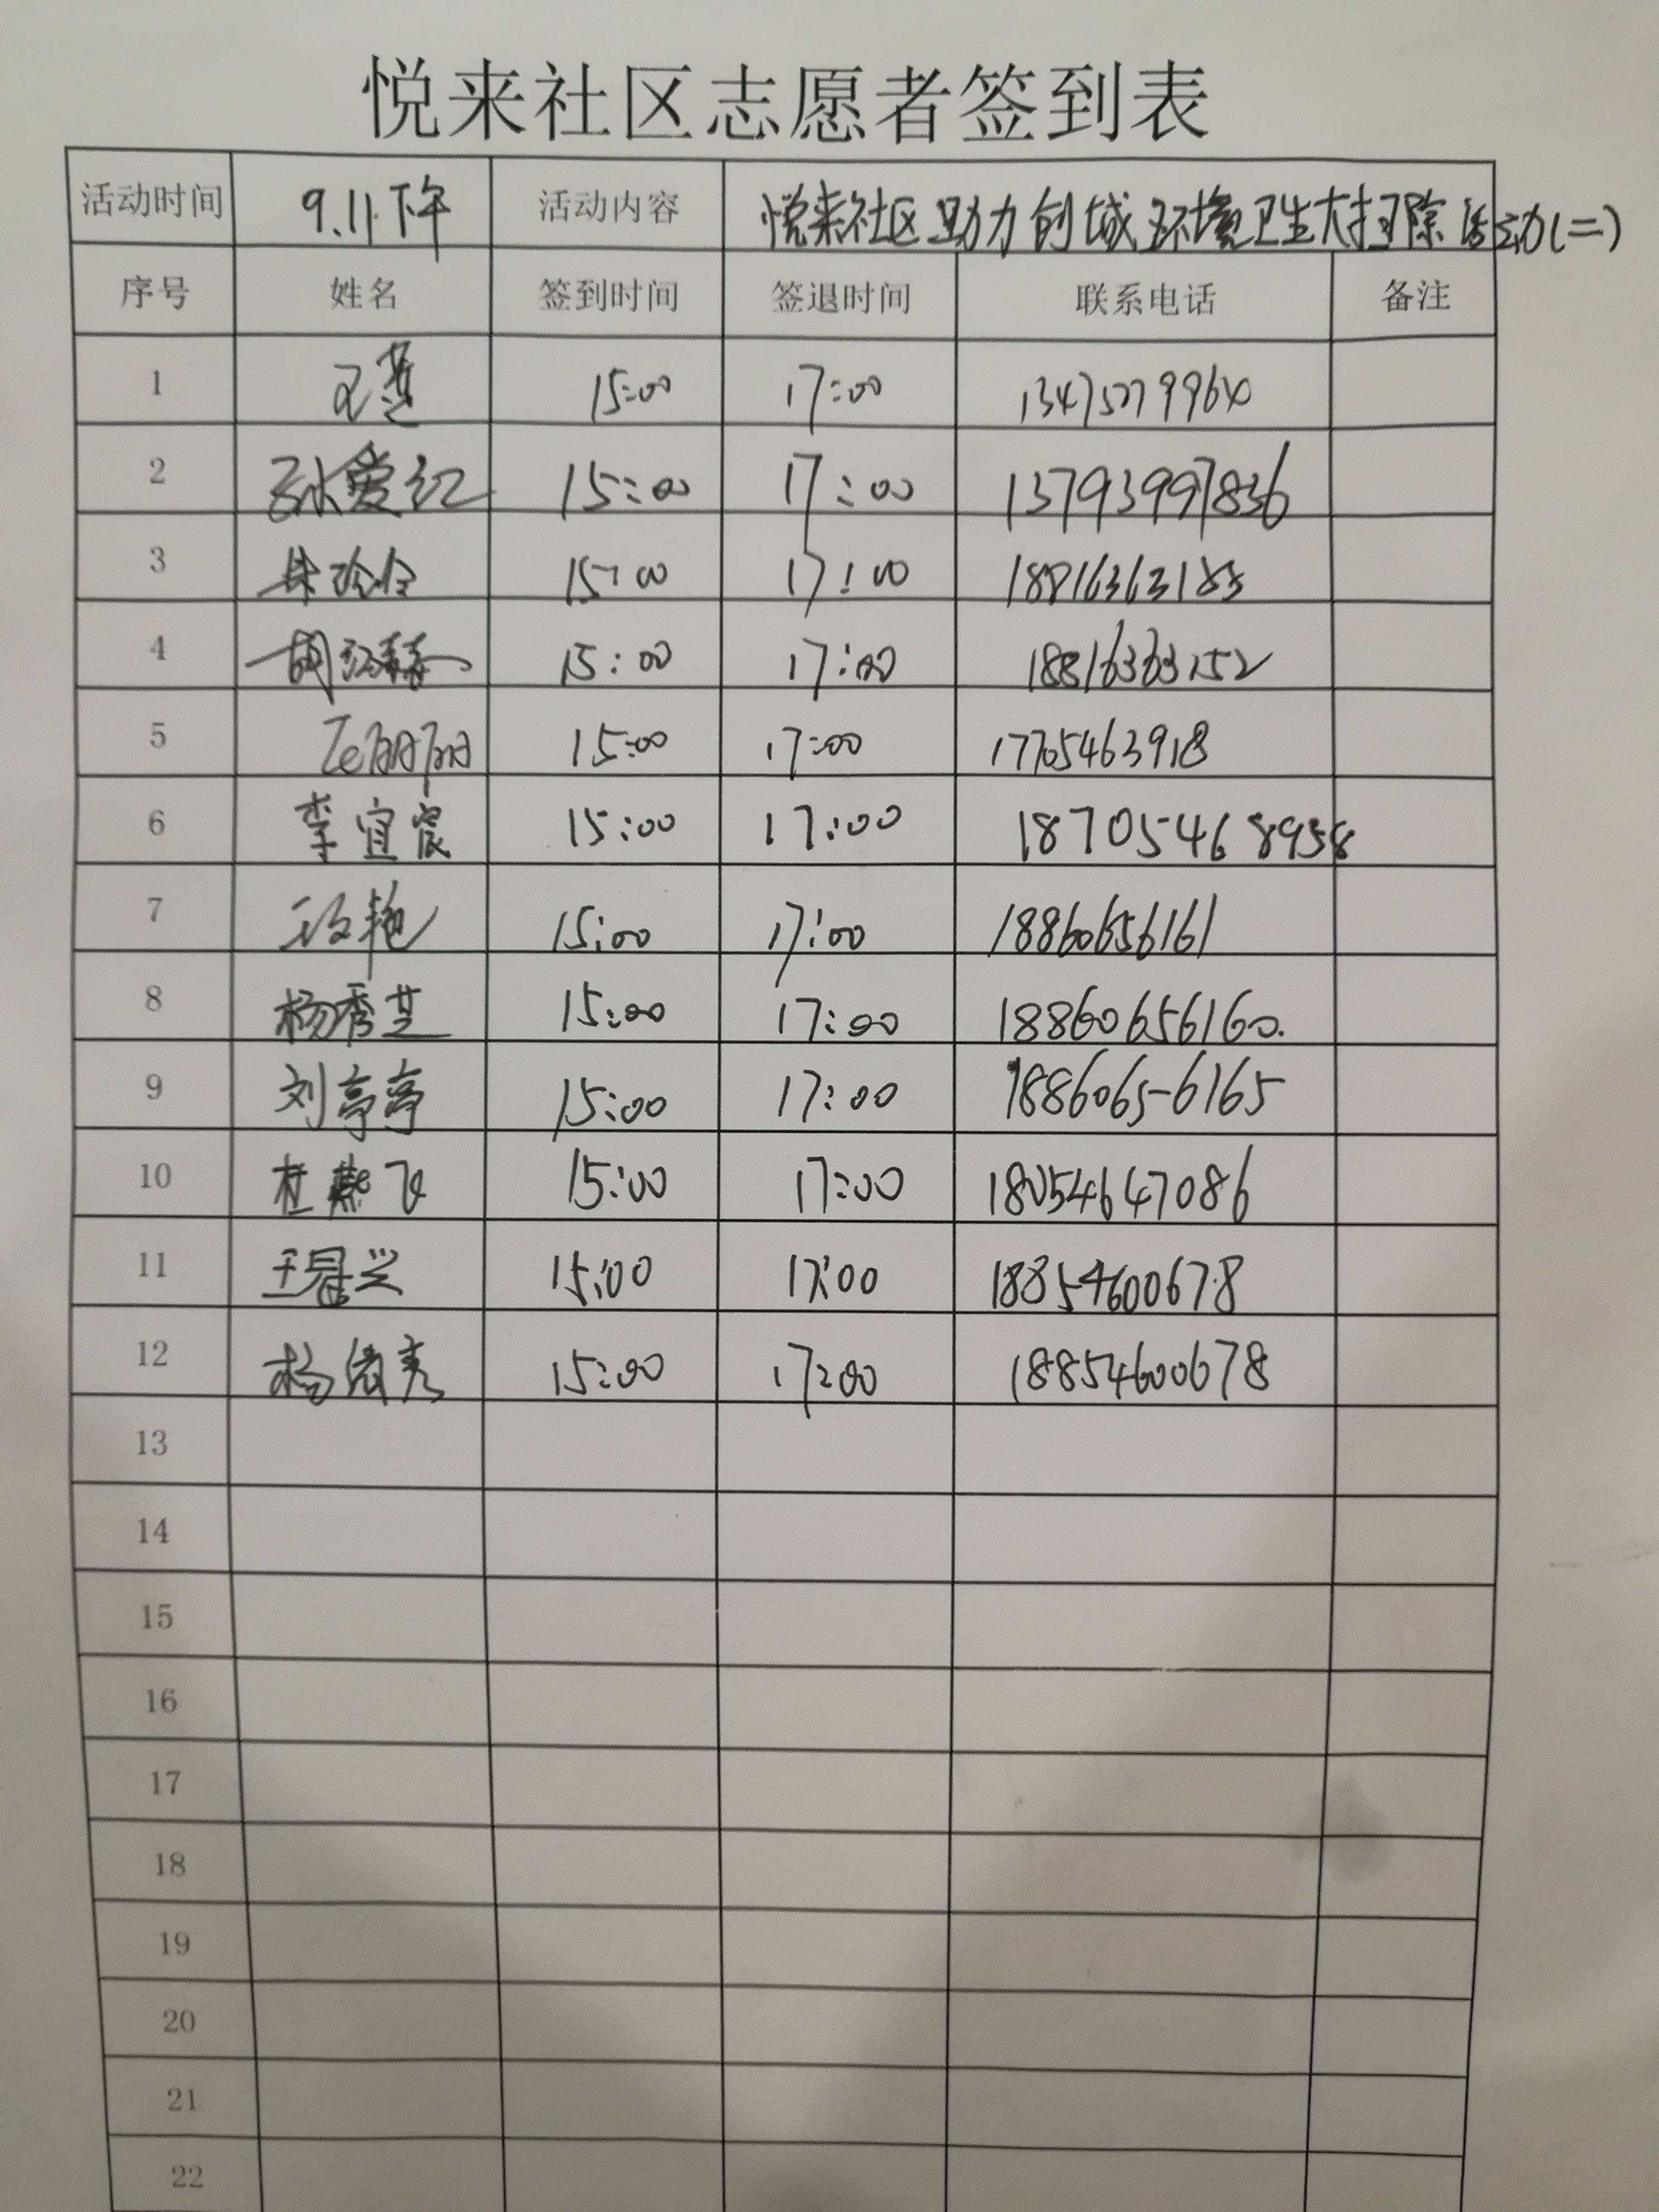 悦来社区志愿者签到表
活动时间 9.11.下午 活动内容 悦来社区助力创城环境卫生大扫除活动(二)
序号 姓名 签到时间 签退时间 联系电话 备注
1 15:00 17:00
2 孙爱红 15:00 17:00 13793997836
3 15:00 17:00 18816363185
4 15:00 17:00 18816363152
5 15:00 17:00 17705463918
6 李宜宸 15:00 17:00 18705468958
7 15:00 17:00 18860656161
8 杨秀芝 15:00 17:00 18860656160.
9 刘亭亭 15:00 17:00 1886065-6165
10 杜燕飞 15:00 17:00 18054647086
11 王冠兴 15:00 17:00 18854600678
12 15:00 17:00 18854600678
13
14
15
16
17
18
19
20
21
22